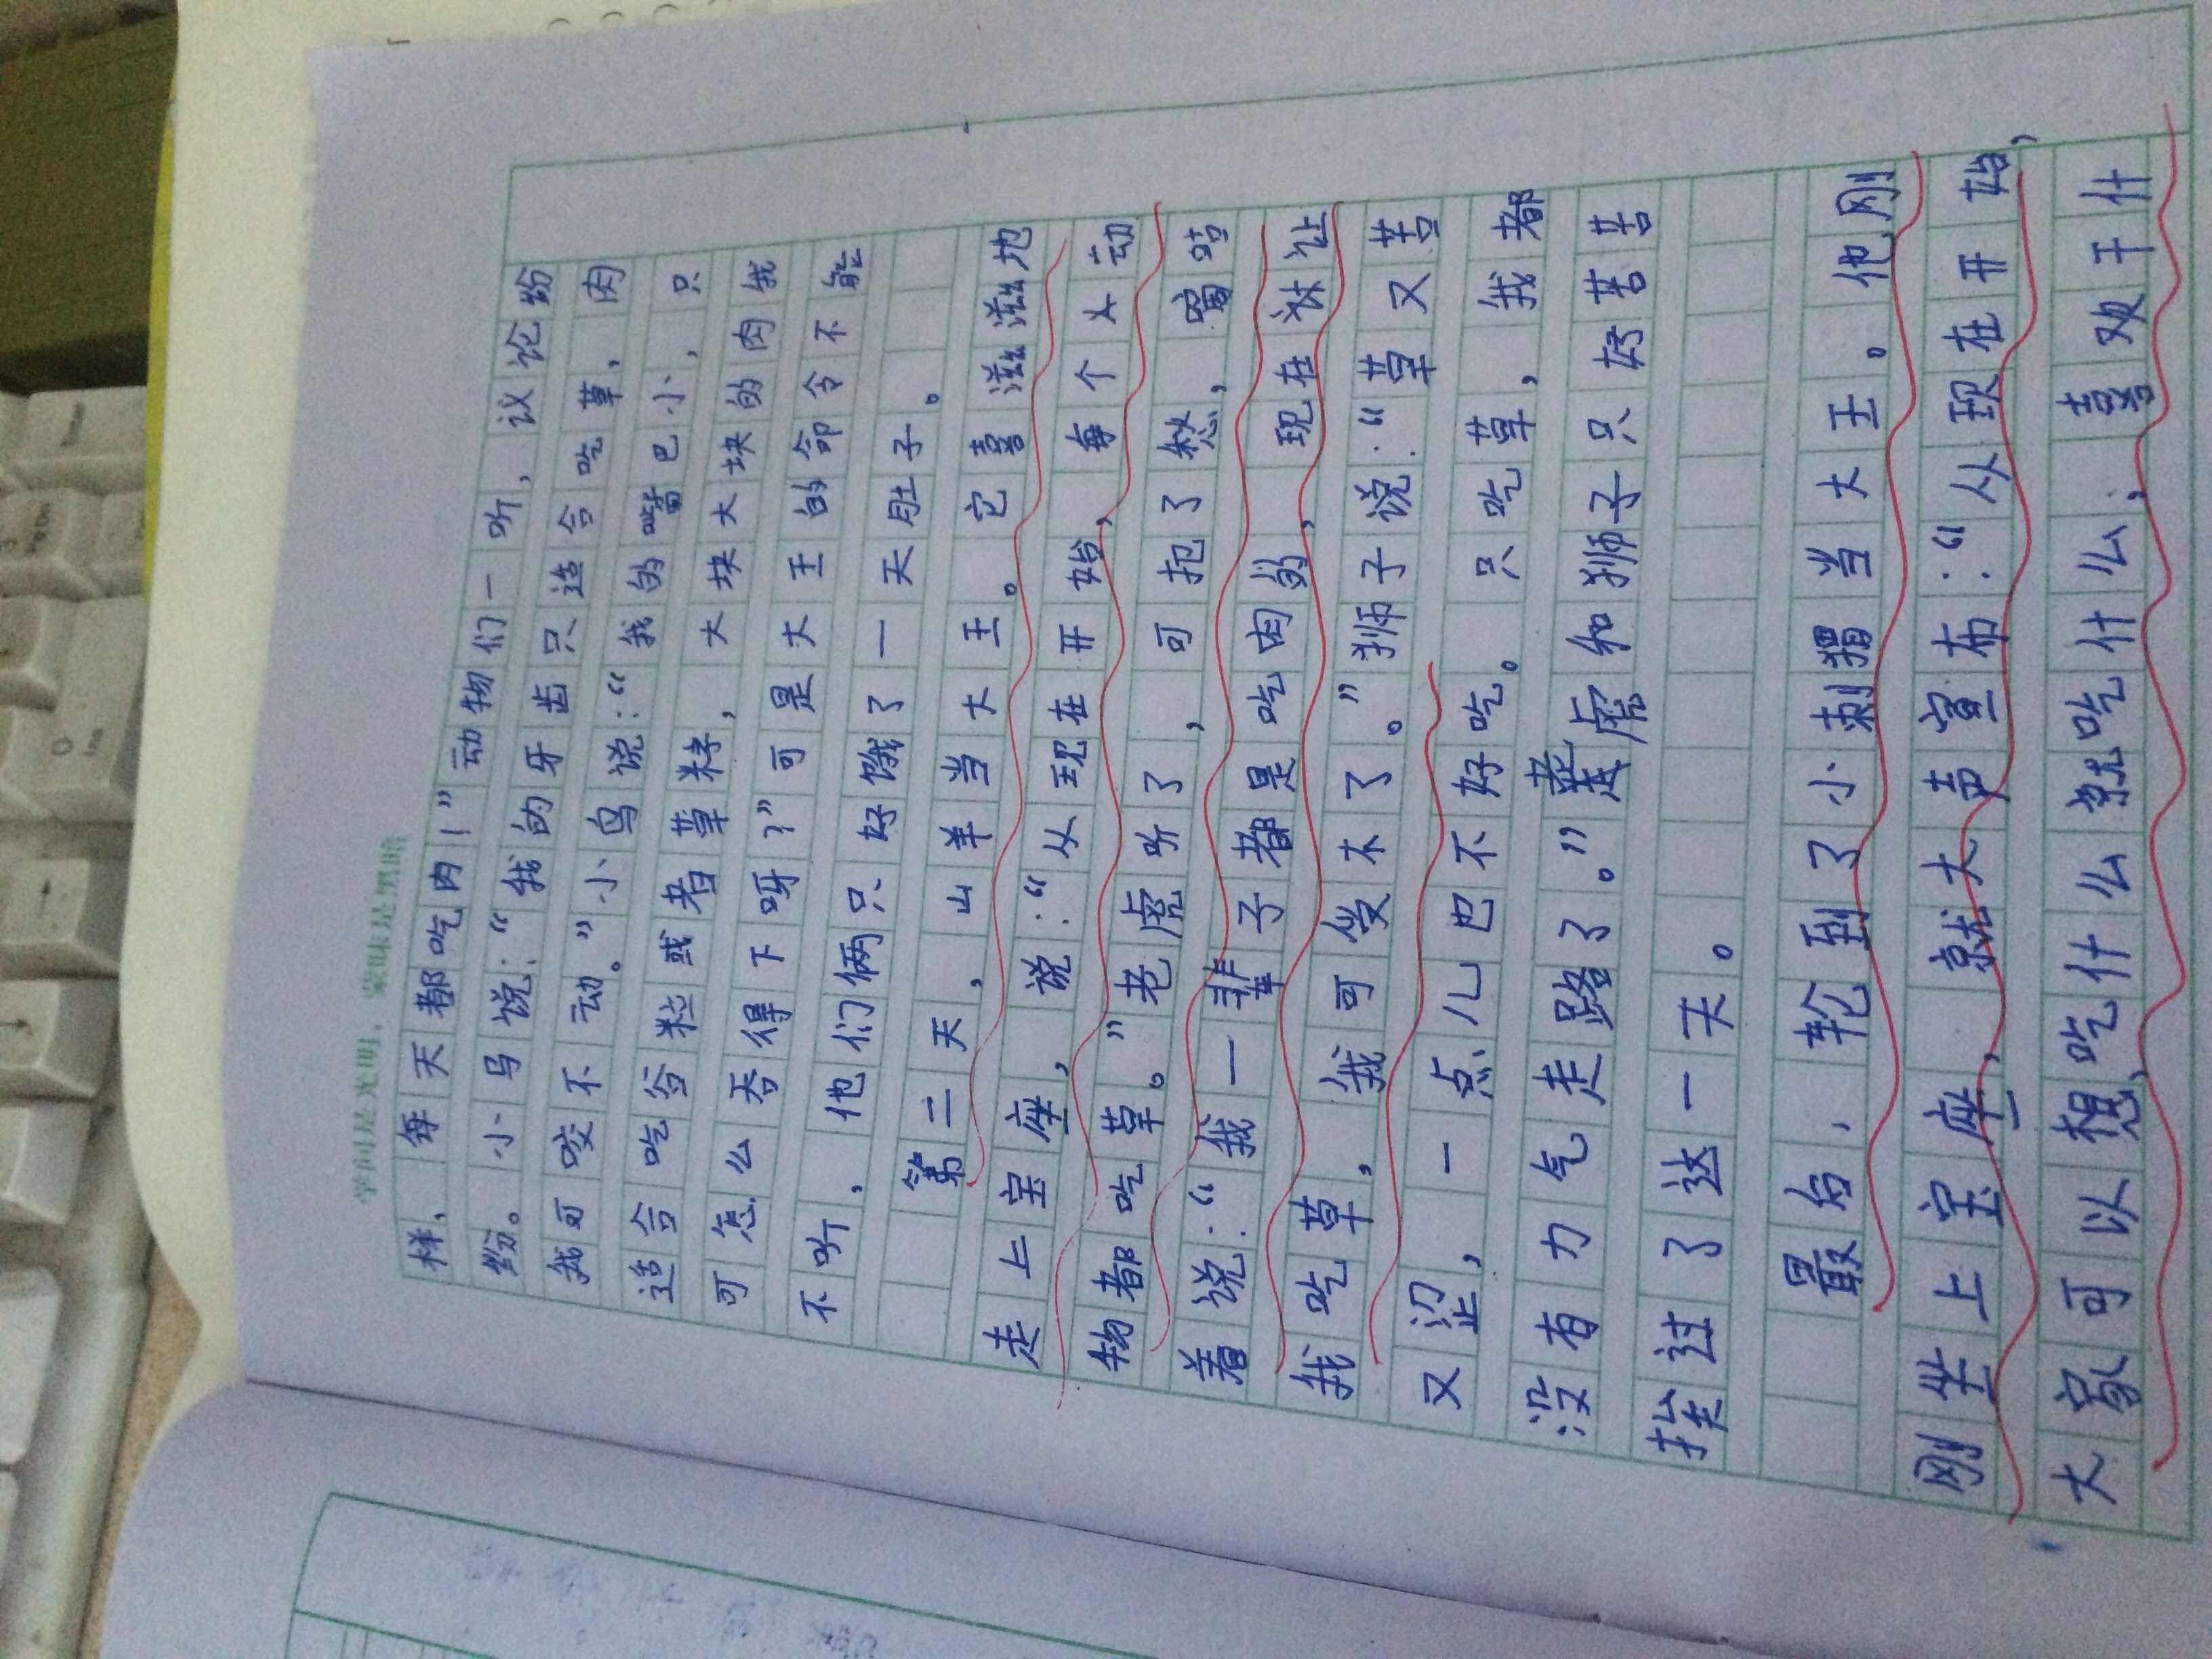 样，每天都吃肉！”动物们一听，议论纷
纷。小马说：“我的牙齿只适合吃草，肉
我可咬不动。”小鸟说：“我的嘴巴小，只
适合吃谷粒或者草籽，大块大块的肉我
可怎么吞得下呀？”可是大王的命令不能
不听，他们俩只好饿了一天肚子。
第二天，山羊当大王。它喜滋滋地
走上宝座，说：“从现在开始，每个人动
物都吃草。”老虎听了，可抱了愁，嘟咕
着说：“我一辈子都是吃肉的，现在该让
我吃草，我可受不了。”狮子说：“草又苦
又涩，一点儿也不好吃。只吃草，我都
没有力气走路了。”老虎和狮子只好苦苦
挨过了这一天。
最后，轮到了小刺猬当大王。他刚
刚坐上宝座，就大声宣布：“从现在开始，
大家可以想吃什么就吃什么，喜欢干什